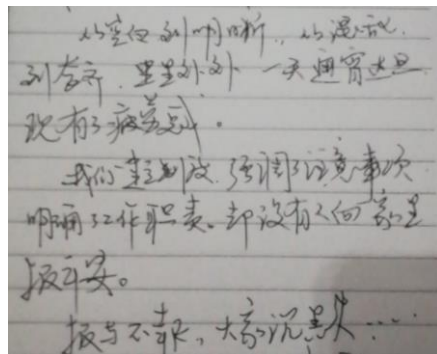 从空白到明晰，从混沌
到有齐，里里外外一天通宵达旦
现有了疲劳感。
我们建立制度，强调了注意事项
明确了工作职责。却没有人向家里
报平安。
报与不报，大家沉默……